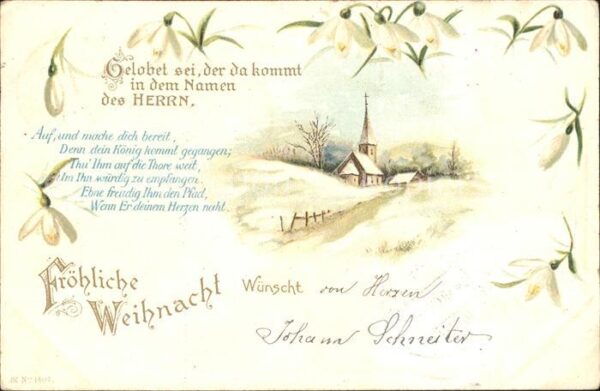 Gelobet sei, der da kommt
in dem Namen
des HERRN.
Auf, und mache dich bereit,
Denn dein König kommt gegangen;
Thu' Ihm auf die Thore weit,
Um Ihn würdig zu empfangen,
Ebne freudig Ihm den Pfad,
Wenn Er deinem Herzen naht.
Fröhliche Weihnacht
Wünscht von Herzen
Johann Schneiter